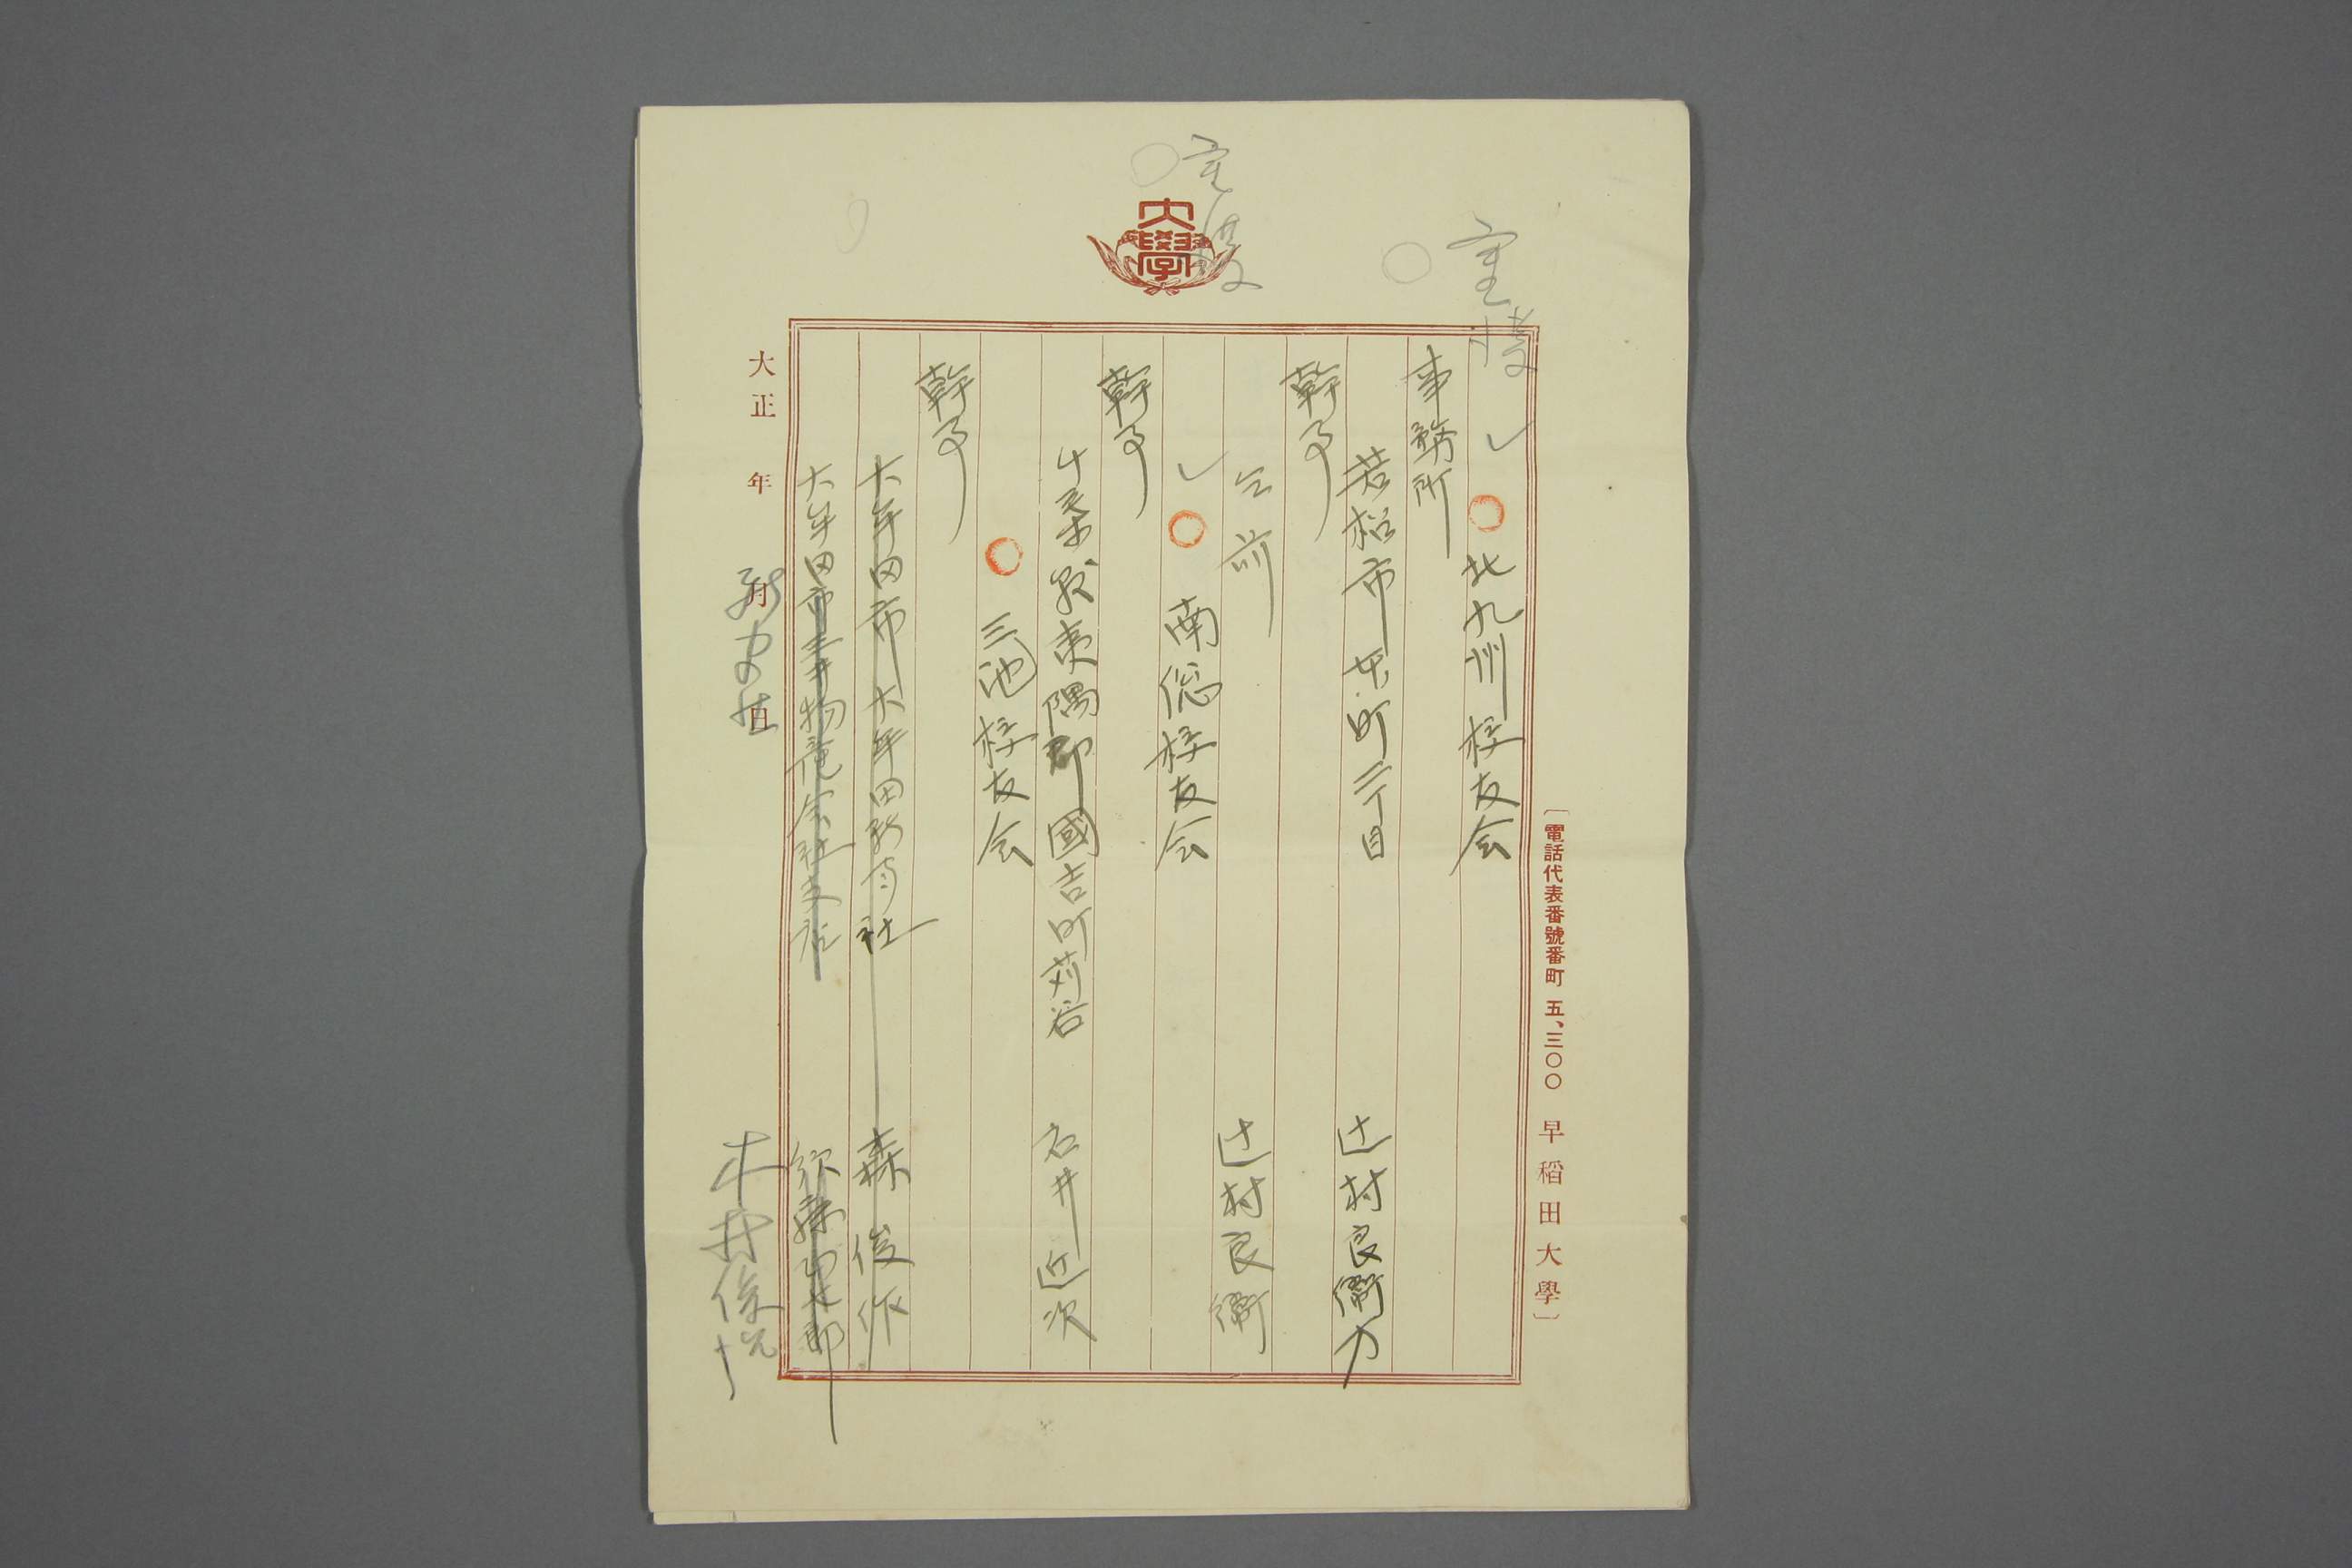 〔電話代表番號番町 五、三〇〇 早稻田大學〕
大學
重複
重複
北九州校友会
事務所
若松市本町二丁目 辻村良衛方
幹事
仝前 辻村良衛
南総校友会
幹事
千葉縣夷隅郡國吉町苅谷 石井近次
三池校友会
幹事
大牟田市大牟田新聞社 森俊作
大牟田市三井物産会社支店
大正 年 月 日